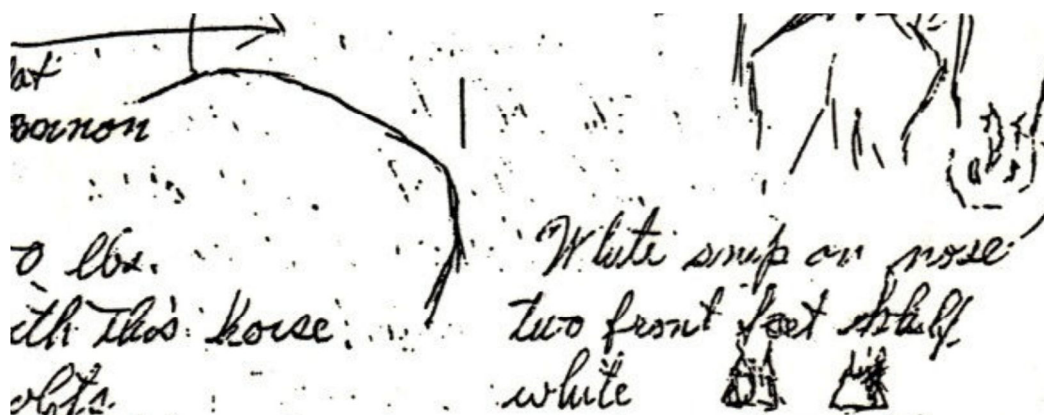 lat
O lbs.
ith this horse.
olts.
White snip on nose
two front feet half
white